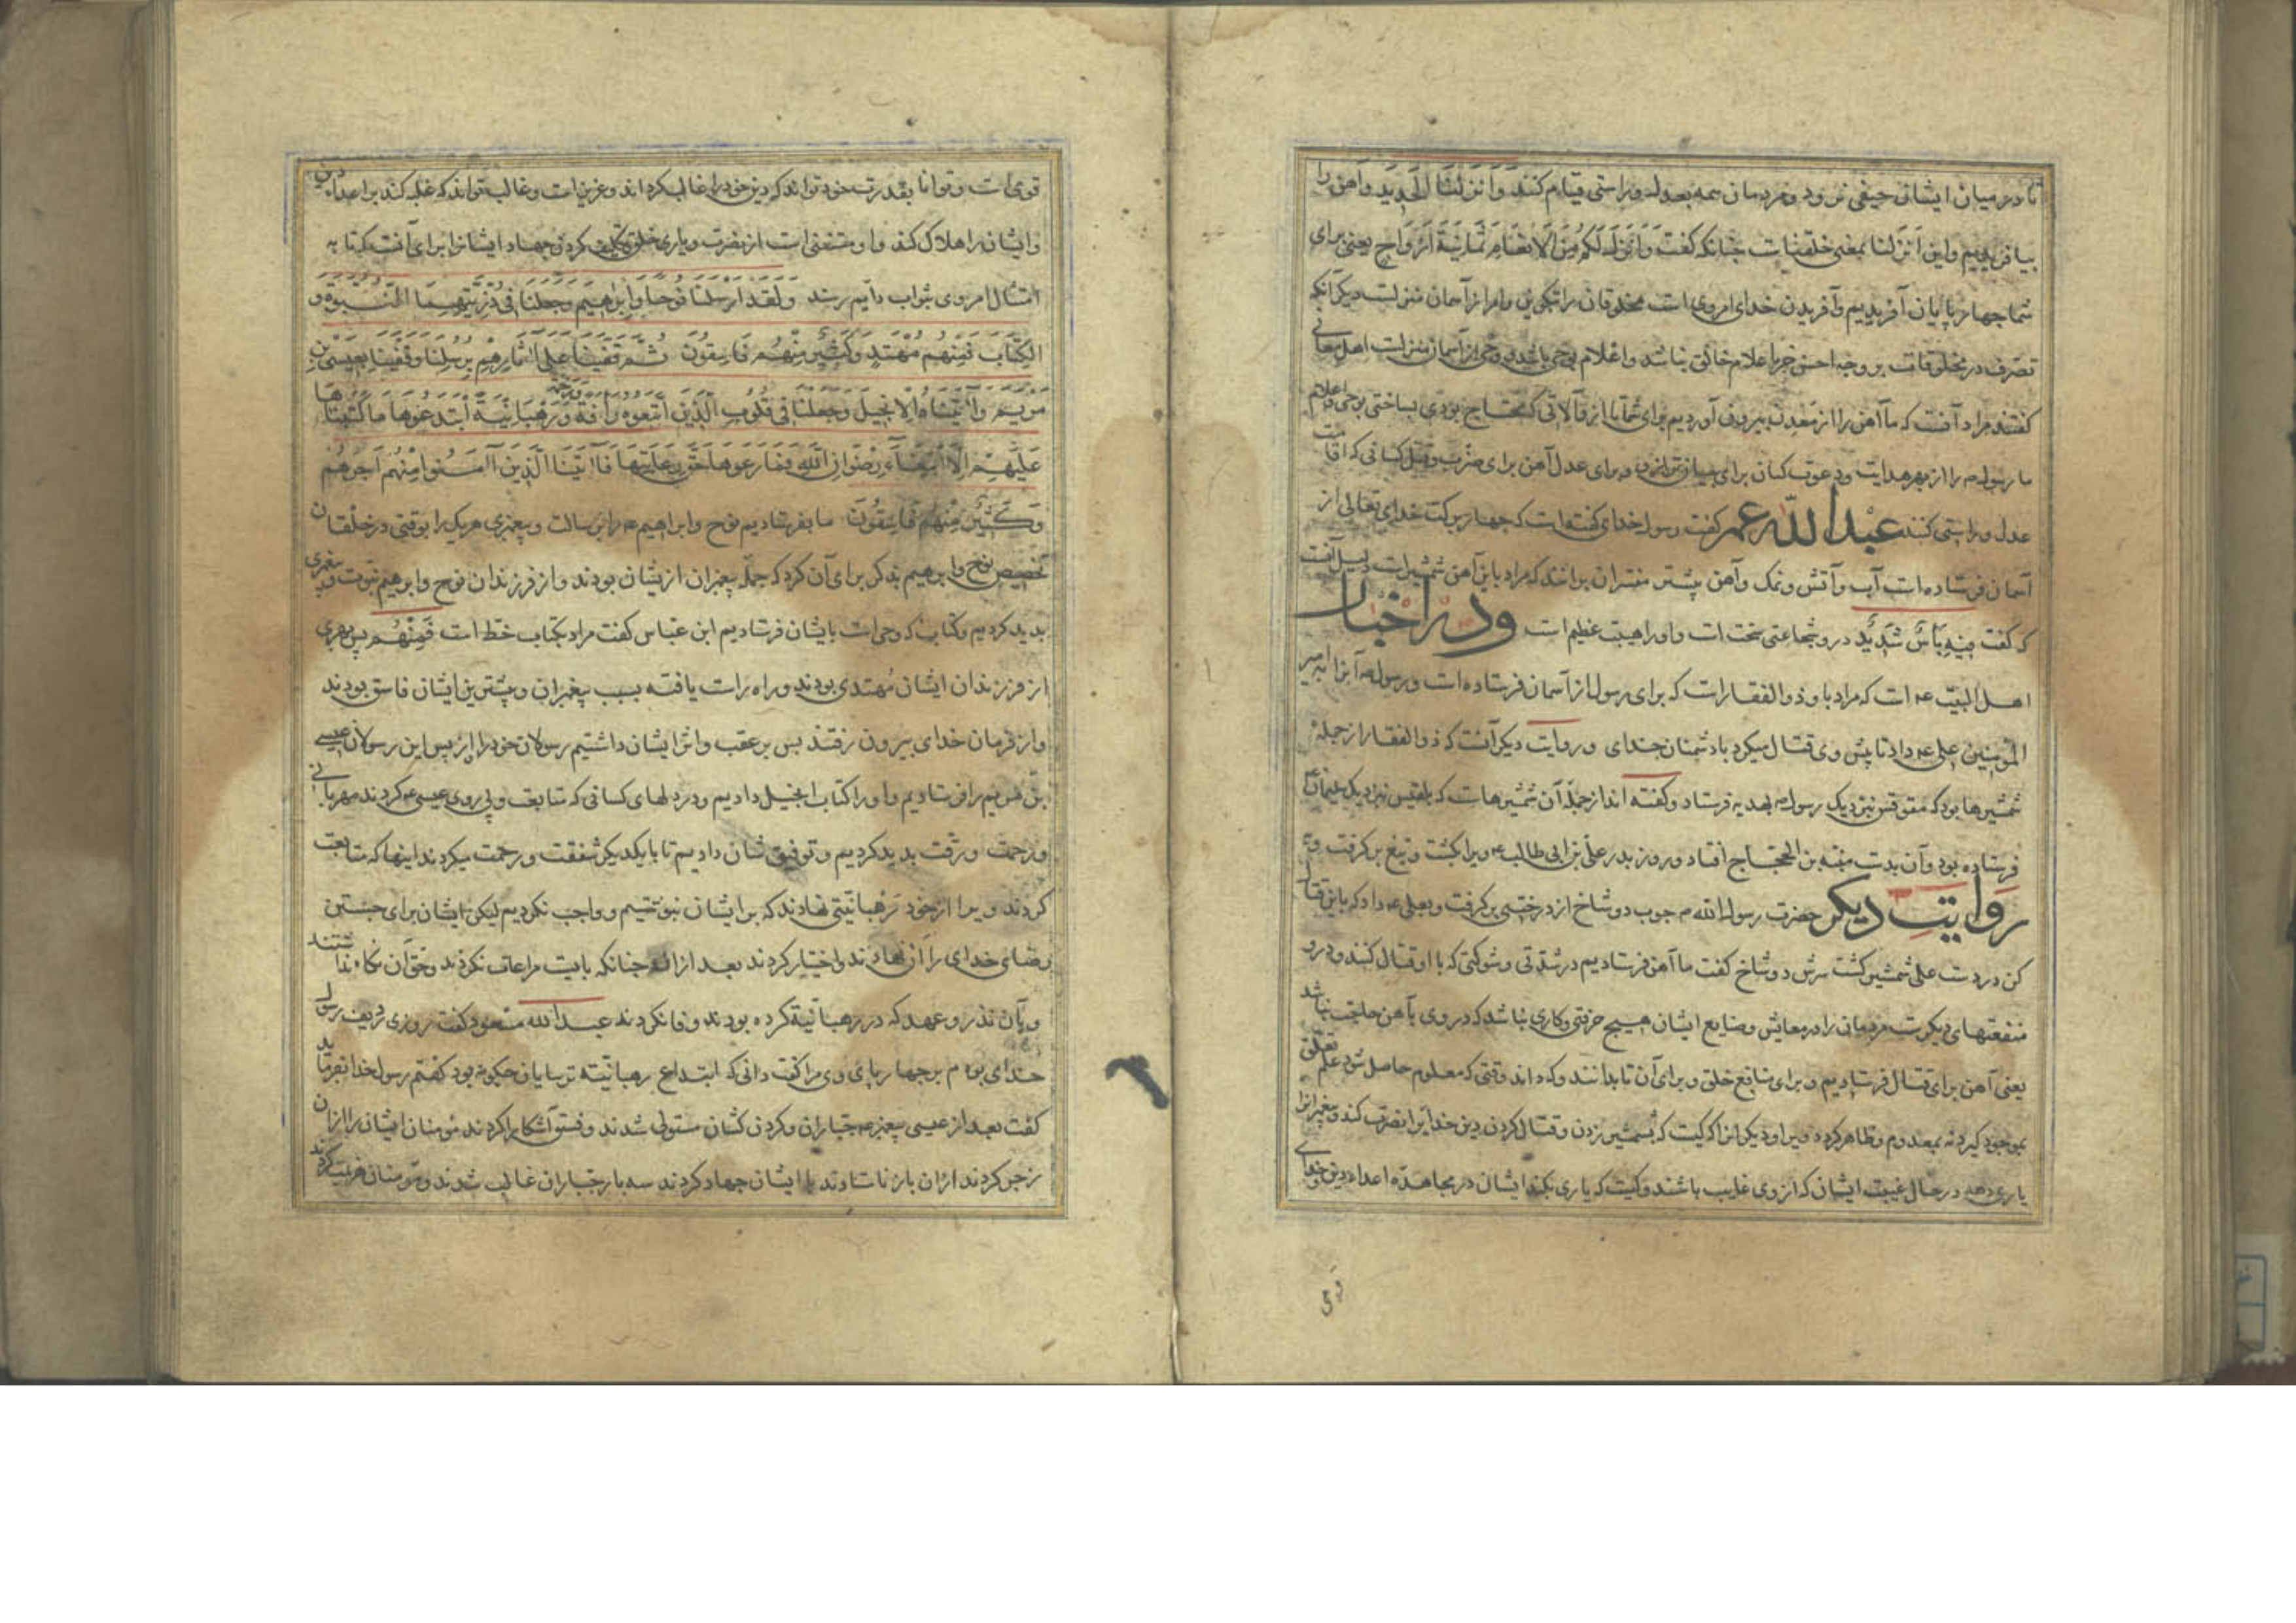 تا در میان ایشان حیفی نرود و مردمان همه بعدل و راستی قیام کنند وَاَنْزَلْنَا الْحَدِیدَ و آهن را
بیافریدیم و این اَنْزَلنا بمعنی خلقنا است چنانکه گفت وَاَنْزَلَ لَکُمْ مِنَ الْاَنعَامِ ثَمَانِیَةَ اَزْوَاجٍ یعنی برای
شما چهارپایان آفریدیم و آفریدن خدای امروی است مخلوقان را بتکوین و امر از آسمان منزلست دیگر آنکه
تصرف در مخلوقات بر وجه احسن جز باعلام خالق نباشد و اعلام بوحی باشد و وحی از آسمان منزلست اهل معانی
گفتند مراد آنست که ما آهن را از معدن بیرون آوردیم برای شما تا از آن آلاتی که محتاج بودی بساختی بوحی و اعلام
ما رسول را از بهر هدایت و دعوت کسان برای میزان ترازو و برای عدل آهن برای ضرب و قتل کسانی که اقامت
عدل و راستی کنند عبد الله عمر گفت رسول خدای گفته است که چهار برکت خدای تعالی از
آسمان فرستاده است آب و آتش و نمک و آهن بیشتر مفسران برانند که مراد باین آهن شمشیر است دلیل آنست
که گفت فِیهِ بَأسٌ شَدِیدٌ در و شجاعتی سخت است و او را هیبت عظیم است و در اخبار
اهل البیت ع است که مراد باو ذو الفقار است که برای رسول از آسمان فرستاده است و رسول آنرا بامیر
المؤمنین علی ع داد تا پیش وی قتال میکرد با دشمنان خدای و روایت دیگر آنست که ذو الفقار از جمله
شمشیرها بود که مقوقس نزدیک رسول بهدیه فرستاد و گفته اند از جمله آن شمشیرهاست که بلقیس نزدیک سلیمان
فرستاده بود و آن بدست منبه بن الحجاج افتاد و روز بدر علی بن ابی طالب ع ویرا بکشت و تیغ برگرفت و
روایت دیگر حضرت رسول الله چوب دو شاخ از درختی برگرفت و بعلی ع داد که باین قتال
کن در دست علی شمشیر گشت سرش دو شاخ گفت ما آهن فرستادیم در شدتی و شوکتی که با او قتال کنند و درو
منفعتهای دیگرست مردمان را در معایش و صنایع ایشان هیچ حرفتی و کاری نباشد که در وی بآهن حاجت نباشد
یعنی آهن برای قتال فرستادیم و برای منافع خلق و برای آن تا بدانند و که داند وقتی که معلوم حاصل شود علم تعلق
بموجود گیرد نه بمعدوم و ظاهر گردد ویرا و دیگرانرا که کیست که بشمشیر زدن و قتال کردن دین خدایرا نصرت کند و پیغمبرانرا
یاری دهد در حال غیبت ایشان که از وی غایب باشند و کیست که یاری نکند ایشان در مجاهده اعداء دین خدای
قوی است و توانا بقدرت خود تواند که دین خود را غالب گرداند و عزیز است و غالب تواند که غلبه کند بر اعداء دین
و ایشان را هلاک کند و او مستغنی است از نصرت و یاری خلق تکلیف کردن جهاد ایشانرا برای آنست که تا به
امتثال امر وی بثواب دایم رسند وَلَقَدْ اَرْسَلْنَا نُوحًا وَاِبْرَاهِیمَ وَجَعَلْنَا فِی ذُرِّیَّتِهِمَا النُّبُوَّةَ وَ
الْکِتَابَ فَمِنْهُمْ مُهْتَدٍ وَکَثِیرٌ مِنْهُمْ فَاسِقُونَ ثُمَّ قَفَّیْنَا عَلَی اٰثَارِهِمْ بِرُسُلِنَا وَقَفَّیْنَا بِعِیسَی بْنِ
مَرْیَمَ وَاٰتَیْنَاهُ الْاِنْجِیلَ وَجَعَلْنَا فِی قُلُوبِ الَّذِینَ اتَّبَعُوهُ رَأفَةً وَرَحْمَةً وَرَهْبَانِیَّةً ابْتَدَعُوهَا مَا کَتَبْنَاهَا
عَلَیْهِمْ اِلَّا ابْتِغَآءَ رِضْوَانِ اللّٰهِ فَمَا رَعَوْهَا حَقَّ رِعَایَتِهَا فَاٰتَیْنَا الَّذِینَ اٰمَنُوا مِنْهُمْ اَجْرَهُمْ
وَکَثِیرٌ مِنْهُمْ فَاسِقُونَ ما بفرستادیم نوح و ابراهیم ع را برسالت و پیغمبری هر یک را بوقتی در خلقان
تخصیص نوح و ابرهیم بذکر برای آن کرد که جمله پیغمبران از یشان بودند و از فرزندان نوح و ابرهیم نبوت و پیغمبری
بدید کردیم و کتاب که وحی است بایشان فرستادیم ابن عباس گفت مراد بکتاب خط است فَمِنْهُمْ پس بهری
از فرزندان ایشان مُهتدی بودند و راه راست یافته بسبب پیغمبران و بیشترین ایشان فاسق بودند
و از فرمان خدای بیرون رفتند پس بر عقب و اثر ایشان داشتیم رسولان خود را از پس این رسولان عیسی
بن مریم را فرستادیم و او را کتاب انجیل دادیم و در دلهای کسانی که متابعت و پی روی عیسی ع کردند مهربانی
و رحمت و رقت بدید کردیم و توفیق شان دادیم تا با یکدیگر شفقت و رحمت میکردند اینها که متابعت
کردند ویرا از خود رَهْبَانیّتی نهادند که بر ایشان ننوشتیم و واجب نکردیم لیکن ایشان برای جستن
رضای خدای را آن نهادند و اختیار کردند بعد از آن چنانکه بایست مراعات نکردند و حق آن نگاه نداشتند
و بآن نذر و عهد که در رهبانیة کرده بودند وفا نکردند عبد الله مسعود گفت روزی ردیف رسول
خدای بودم بر چهارپای وی مرا گفت دانی که ابتداع رهبانیّة ترسایان چگونه بود گفتم رسول خدا بفرماید
گفت بعد از عیسی پیغمبر جباران و گردن کشان مستولی شدند و فسق آشکارا کردند مؤمنان ایشان را از آن
زجر کردند از آن باز نایستادند با ایشان جهاد کردند سه بار جباران غالب شدند و مؤمنان هزیمت کردند